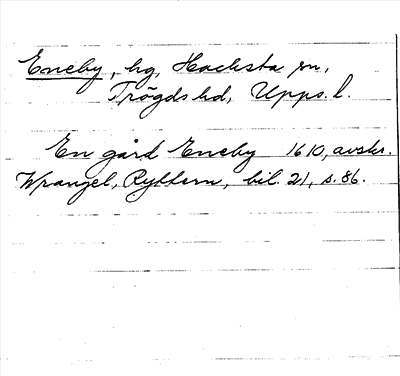 Eneby, hg, Hacksta sn,
Trögds hd, Upps. l.
En gård Eneby 1610, avskr.
Wrangel, Ryttern, bil. 21, s. 86.